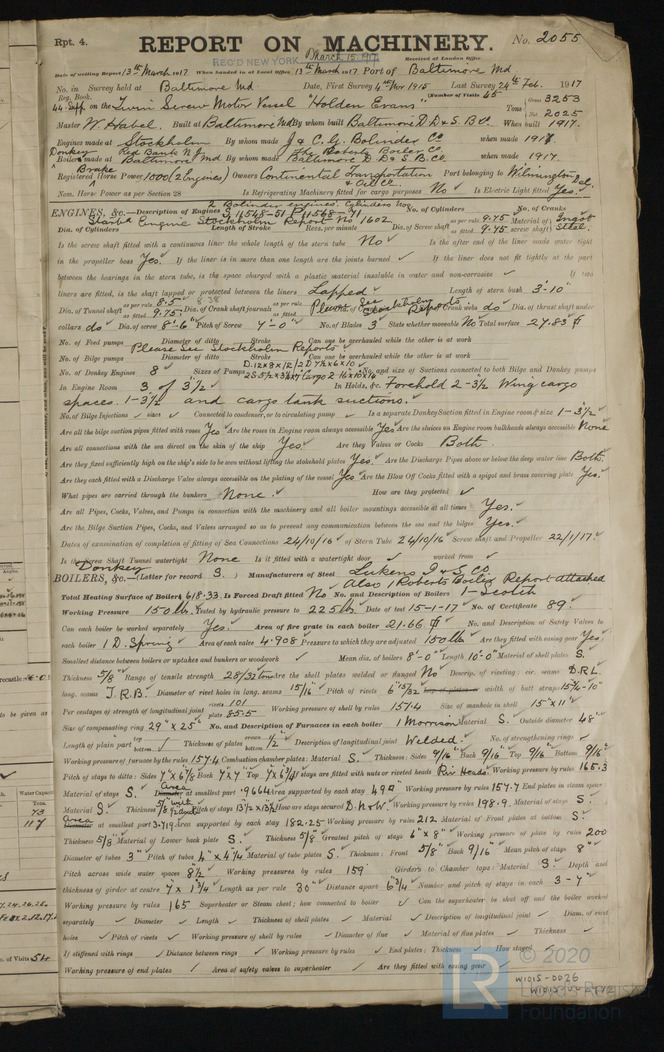 Rpt. 4.
REPORT ON MACHINERY.
No. 2055
REC'D NEW YORK March 15 1917
Received at London Office
Date of writing Report 13th March 1917 When handed in at Local Office 13th March 1917 Port of Baltimore Md
No. in Reg. Book. Survey held at Baltimore Md Date, First Survey 4th Nov 1915 Last Survey 24th Feb. 1917
(Number of Visits 45
44 Supp. on the Twin Screw Motor Vessel "Holden Evans" Tons Gross 3253
Net 2025
Master W. Habel. Built at Baltimore Md By whom built Baltimore D.D & S.B. Co. When built 1917.
Engines made at Stockholm By whom made J & C. G. Bolinder Co when made 1917.
Donkey Boilers made at Red Bank N.J. Baltimore Md By whom made The Roberts Boiler Co. Baltimore D.D & S.B. Co. when made 1917.
Brake
Registered Horse Power 1000 (2 Engines) Owners Continental Transportation & Oil Co. Port belonging to Wilmington Del.
Nom. Horse Power as per Section 28 Is Refrigerating Machinery fitted for cargo purposes No Is Electric Light fitted Yes.
ENGINES, &c.—Description of Engines 2 Bolinder engines. Cylinders Nos. S 11548-51 P No. of Cylinders No. of Cranks
Engine Stockholm Report No 1602
Dia. of Cylinders Length of Stroke Revs. per minute Dia. of Screw shaft as per rule 9.75 as fitted 9.75 Material of screw shaft Ingot Steel.
Is the screw shaft fitted with a continuous liner the whole length of the stern tube No Is the after end of the liner made water tight
in the propeller boss Yes. If the liner is in more than one length are the joints burned ✓ If the liner does not fit tightly at the part
between the bearings in the stern tube, is the space charged with a plastic material insoluble in water and non-corrosive ✓ If two
liners are fitted, is the shaft lapped or protected between the liners Lapped Length of stern bush 3'-10"
Dia. of Tunnel shaft as per rule 8.5 as fitted 9.75 8.38 Dia. of Crank shaft journals as per rule as fitted Please See Stockholm Reports Dia. of Crank webs do Dia. of thrust shaft under
collars do Dia. of screw 8'-6" Pitch of Screw 4'-0" No. of Blades 3 State whether moveable No Total surface 27.83
No. of Feed pumps Diameter of ditto Stroke Can one be overhauled while the other is at work
Please See Stockholm Reports
No. of Bilge pumps Diameter of ditto Stroke Can one be overhauled while the other is at work
No. of Donkey Engines 8 Sizes of Pumps No. and size of Suctions connected to both Bilge and Donkey pumps
In Engine Room 3 of 3½ In Holds, &c. Forehold 2-3½ Wing cargo
spaces. 1-3½ and cargo tank suctions.
No. of Bilge Injections ✓ sizes ✓ Connected to condenser, or to circulating pump ✓ Is a separate Donkey Suction fitted in Engine room & size 1-3½
Are all the bilge suction pipes fitted with roses Yes Are the roses in Engine room always accessible Yes Are the sluices on Engine room bulkheads always accessible None
Are all connections with the sea direct on the skin of the ship Yes. Are they Valves or Cocks Both
Are they fixed sufficiently high on the ship's side to be seen without lifting the stokehold plates Yes. Are the Discharge Pipes above or below the deep water line Both.
Are they each fitted with a Discharge Valve always accessible on the plating of the vessel Yes Are the Blow Off Cocks fitted with a spigot and brass covering plate Yes.
What pipes are carried through the bunkers None. How are they protected ✓
Are all Pipes, Cocks, Valves, and Pumps in connection with the machinery and all boiler mountings accessible at all times Yes.
Are the Bilge Suction Pipes, Cocks, and Valves arranged so as to prevent any communication between the sea and the bilges Yes.
Dates of examination of completion of fitting of Sea Connections 24/10/16 of Stern Tube 24/10/16 Screw shaft and Propeller 22/1/17.
Is the Screw Shaft Tunnel watertight None Is it fitted with a watertight door ✓ worked from ✓
Donkey
BOILERS, &c.—(Letter for record 3.) Manufacturers of Steel Lukens I & S. Co
Also 1 Roberts Boiler Report attached
Total Heating Surface of Boilers 618.33. Is Forced Draft fitted No No. and Description of Boilers 1-Scotch
Working Pressure 150 lb. Tested by hydraulic pressure to 225 lb. Date of test 15-1-17 No. of Certificate 89.
Can each boiler be worked separately Yes. Area of fire grate in each boiler 21.66 No. and Description of Safety Valves to
each boiler 1 D. Spring Area of each valve 4.908 Pressure to which they are adjusted 150 lb Are they fitted with easing gear Yes.
Smallest distance between boilers or uptakes and bunkers or woodwork ✓ Mean dia. of boilers 8'-0" Length 10'-0" Material of shell plates S.
Thickness 5/8" Range of tensile strength 28/32 tons Are the shell plates welded or flanged No Descrip. of riveting: cir. seams D.R.L
long. seams T.R.B Diameter of rivet holes in long. seams 15/16" Pitch of rivets 6 15/32 width of butt straps 15¼-10"
Per centages of strength of longitudinal joint rivets 101 plate 85.5 Working pressure of shell by rules 157.4 Size of manhole in shell 15" x 11"
Size of compensating ring 29" x 25" No. and Description of Furnaces in each boiler 1 Morrison Material S. Outside diameter 48"
Length of plain part top bottom Thickness of plates crown bottom ½ Description of longitudinal joint Welded. No. of strengthening rings ✓
Working pressure of furnace by the rules 157.4 Combustion chamber plates: Material S. Thickness: Sides 9/16" Back 9/16" Top 9/16" Bottom 9/16"
Pitch of stays to ditto: Sides 7" x 6⅞ Back 7 x 7 Top 7 x 6¾ If stays are fitted with nuts or riveted heads Riv Heads. Working pressure by rules 165.3
Material of stays S. Area at smallest part .9664 Area supported by each stay 49 Working pressure by rules 157.7 End plates in steam space
Material S. Thickness 5/8 How are stays secured D.N & W. Working pressure by rules 198.9. Material of stays S.
Area at smallest part 3.719 Area supported by each stay 182.25 Working pressure by rules 212 Material of Front plates at bottom S.
Thickness 5/8" Material of Lower back plate S. Thickness 5/8" Greatest pitch of stays 6" x 8" Working pressure of plate by rules 200
Diameter of tubes 3" Pitch of tubes 4" x 4¼ Material of tube plates S. Thickness: Front 5/8" Back 9/16" Mean pitch of stays 8"
Pitch across wide water spaces 8½ Working pressures by rules 159 Girders to Chamber tops: Material S. Depth and
thickness of girder at centre 7" x 1¾" Length as per rule 30" Distance apart 6¾" Number and pitch of stays in each 3-7"
Working pressure by rules 165 Superheater or Steam chest; how connected to boiler ✓ Can the superheater be shut off and the boiler worked
separately ✓ Diameter ✓ Length ✓ Thickness of shell plates ✓ Material ✓ Description of longitudinal joint ✓ Diam. of rivet
holes ✓ Pitch of rivets ✓ Working pressure of shell by rules ✓ Diameter of flue ✓ Material of flue plates ✓ Thickness ✓
If stiffened with rings ✓ Distance between rings ✓ Working pressure by rules ✓ End plates: Thickness ✓ How stayed ✓
Working pressure of end plates ✓ Area of safety valves to superheater ✓ Are they fitted with easing gear ✓
© 2020
Lloyd's Register
Foundation
W1015-0026